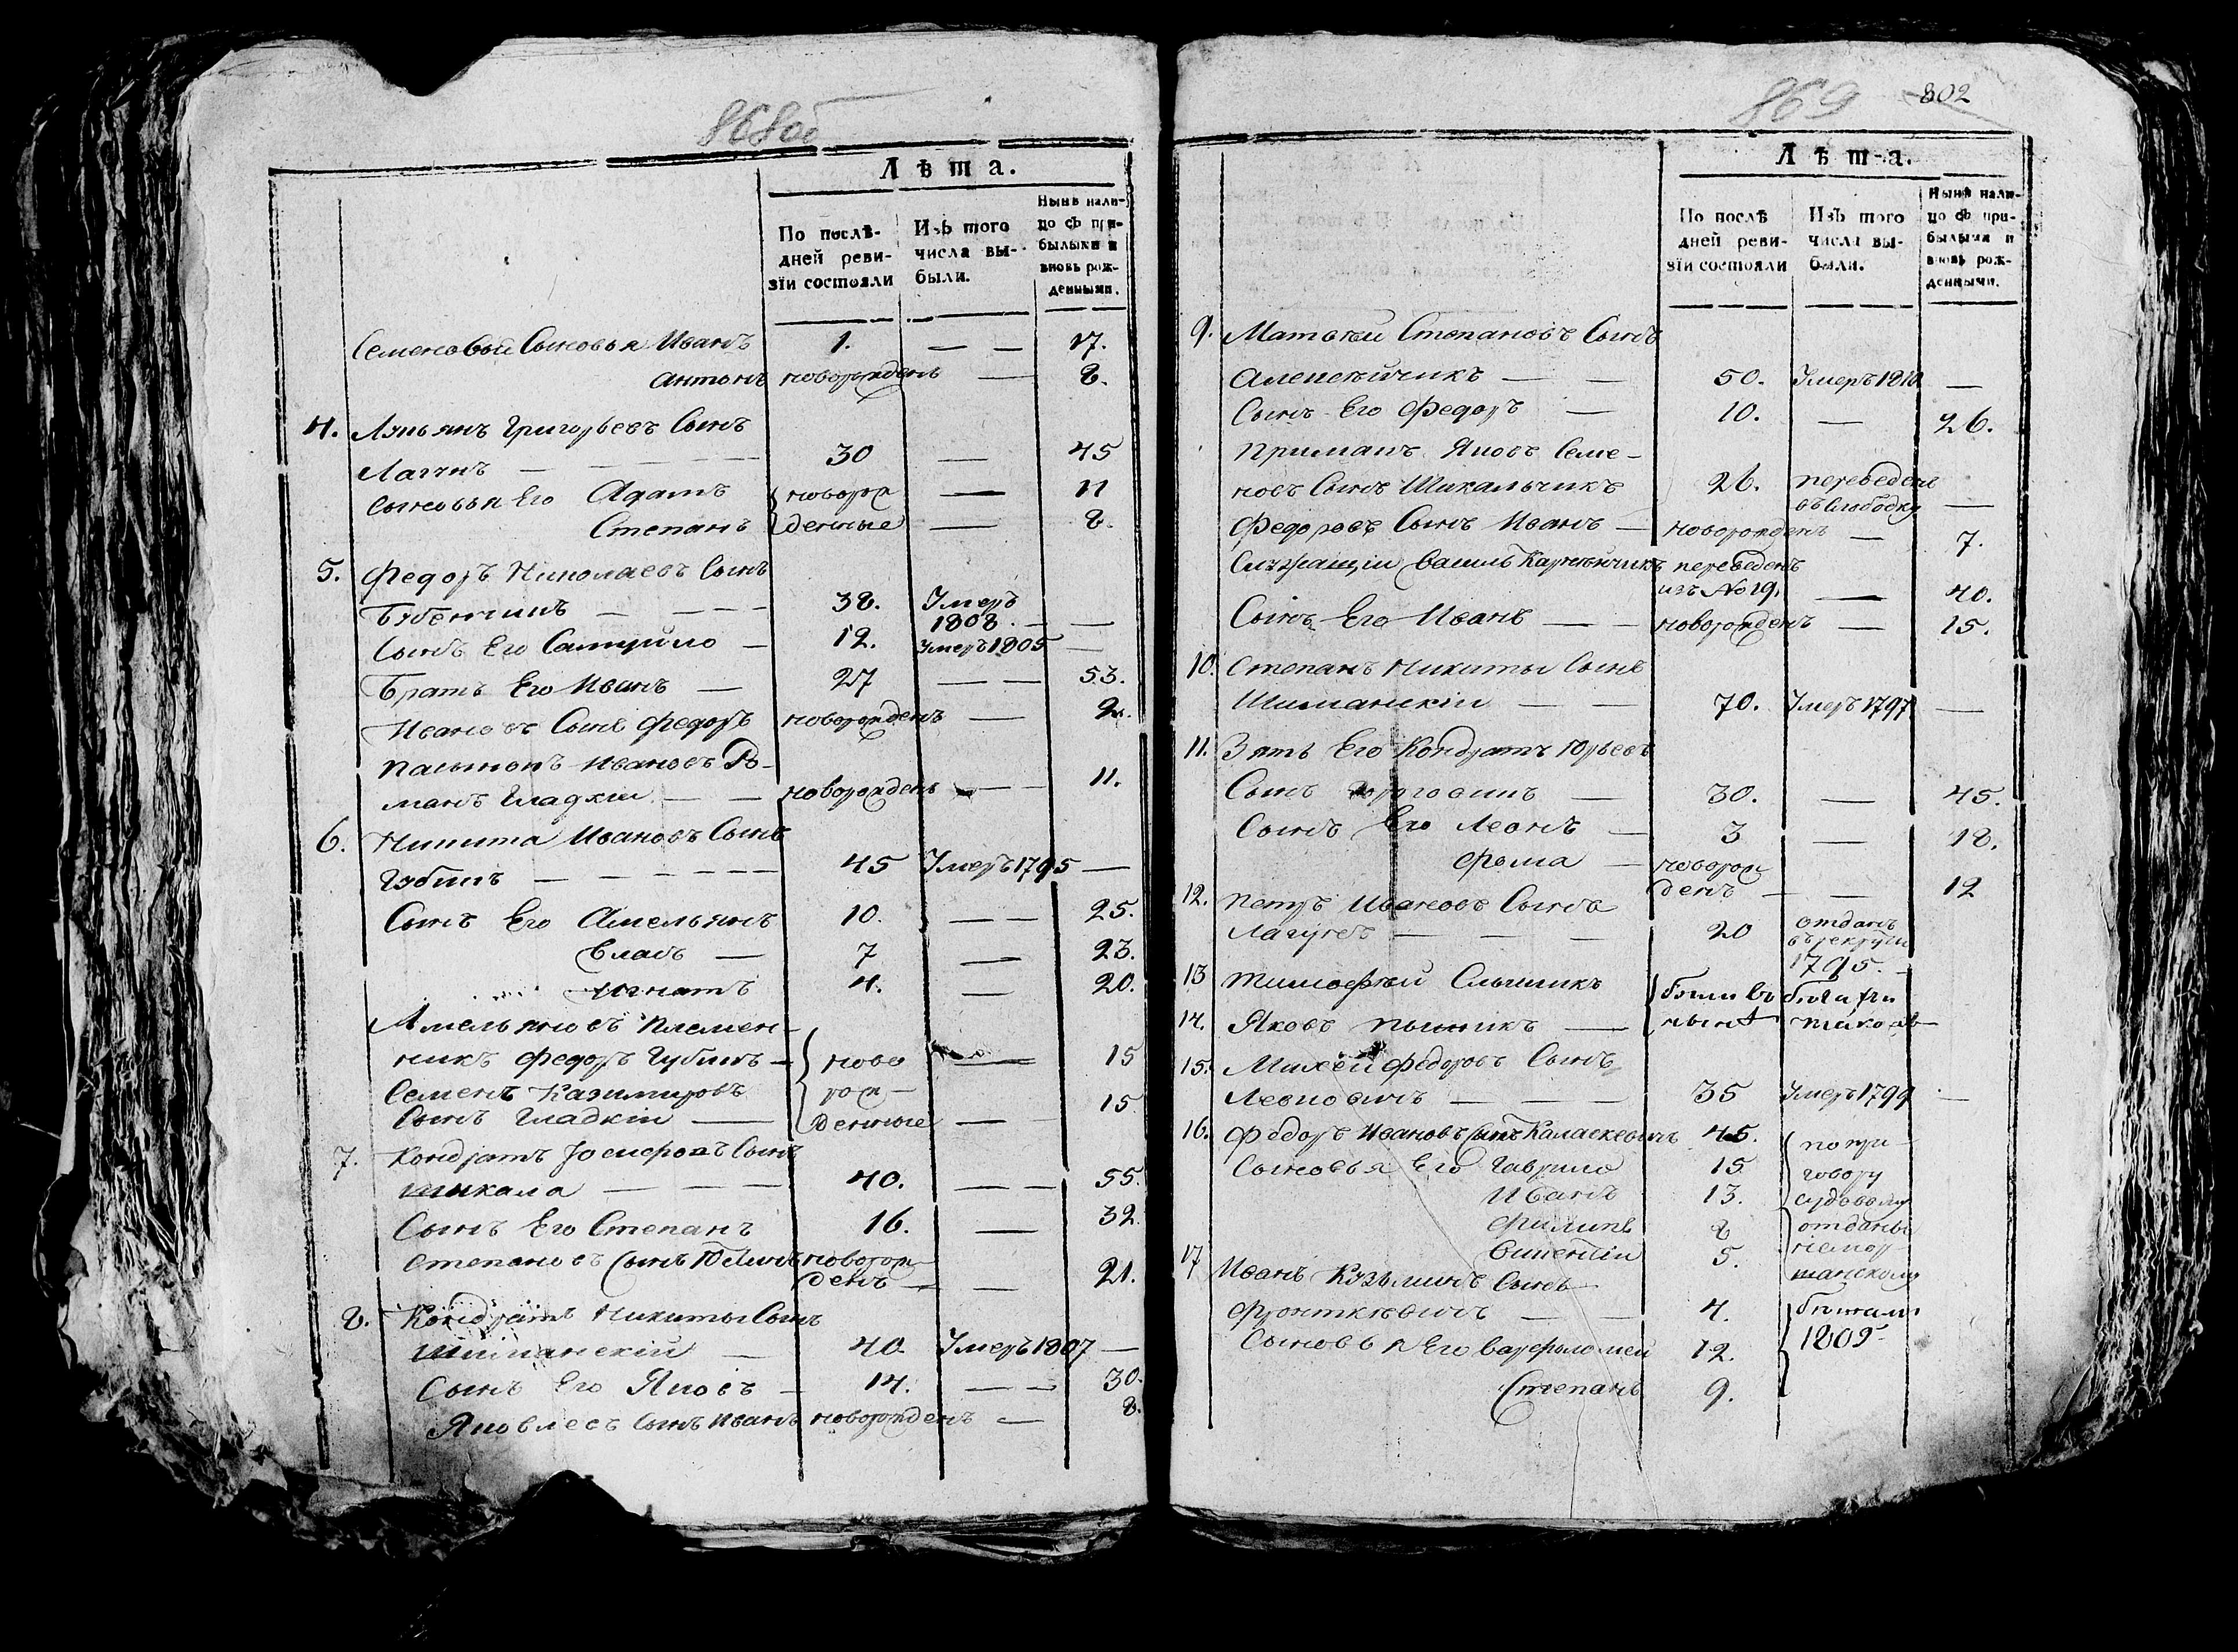 868об
Лѣта.
По послѣ-
дней реви-
зіи состояли
Изъ того
числа вы-
были.
Нынѣ нали-
цо съ при-
былыми и
вновь рож-
денными.
Семеновы Сыновья Иванъ 1. — — 17.
Антонъ новорожденъ — 8.
4. Лукьянъ Григорьевъ Сынъ
— — — 30 — 45
Сыновья Его Адамъ новорож — 11
Степанъ денные — 8.
5. Федоръ Николаевъ Сынъ
— — — 38. Умеръ
1808. — —
Сынъ Его Самуйло — 12. Умеръ 1805 —
Братъ Его Иванъ — 27 — — 53.
Ивановъ Сынъ Федоръ новорожденъ —
Пасынокъ Ивановъ Ро-
манъ Гладкій — — новорожденъ — — 11.
6. Никита Ивановъ Сынъ
Губинъ — — — — — 45 Умеръ 1795 —
Сынъ Его Амельянъ 10. — — 25.
Власъ — 7 — 23.
Игнатъ 4. — 20.
Амельяновъ племен-
никъ Федоръ Губинъ — ново — 15
Семенъ Казимировъ рож-
Сынъ Гладкій — денные — — 15
7. Кондратъ Іосифовъ Сынъ
Шикала — — — 40. — — 55.
Сынъ Его Степанъ 16. — 32
Степановъ Сынъ новорож-
денъ — — 21.
8. Кондратъ Никиты Сынъ
Шиманскій — 40. Умеръ 1807 —
Сынъ Его Яковъ — 14. — — 30.
Яковлевъ Сынъ Иванъ новорожденъ — 8.
869 802
Лѣта.
По послѣ
дней реви-
зіи состояли
Изъ того
числа вы-
были.
Нынѣ нали-
цо съ при-
былыми и
вновь рож-
денными.
9. Матвей Степановъ Сынъ
Алексейчикъ — — 50. Умеръ 1810 —
Сынъ Его Федоръ — 10. — 26.
Примакъ Яковъ Семе-
новъ Сынъ Шикальчикъ 26. переведенъ
въ Слободку —
Федоровъ Сынъ Иванъ — новорожденъ — 7.
Служащій Василь переведенъ
изъ No 19. — 40.
Сынъ Его Иванъ — — новорожденъ — 15.
10. Степанъ Никиты Сынъ
Шиманскій — — 70. Умеръ 1797 —
11. Зять Его Кондратъ Юрьевъ
Сынъ — 30. — 45.
Сынъ Его Леонъ — 3 — 18.
Фома — новорож
денъ — — 12
12. Петръ Ивановъ Сынъ
— — — 20 отданъ
въ рекруты
1795. —
13 Тимофей
14. Яковъ —
15. Михей Федоровъ Сынъ
Леоновичъ — — — 35 Умеръ 1799 —
16. Федоръ Ивановъ Сынъ 45. по при-
Сыновья Его Гаврило 15 говору
Иванъ 13. судовому
Филипъ 8 отданы
Викентій 5.
17 Иванъ Кузьминъ Сынъ
— — 4. бѣжали
Сыновья Его Варфоломей 12. 1809
Степанъ 9.